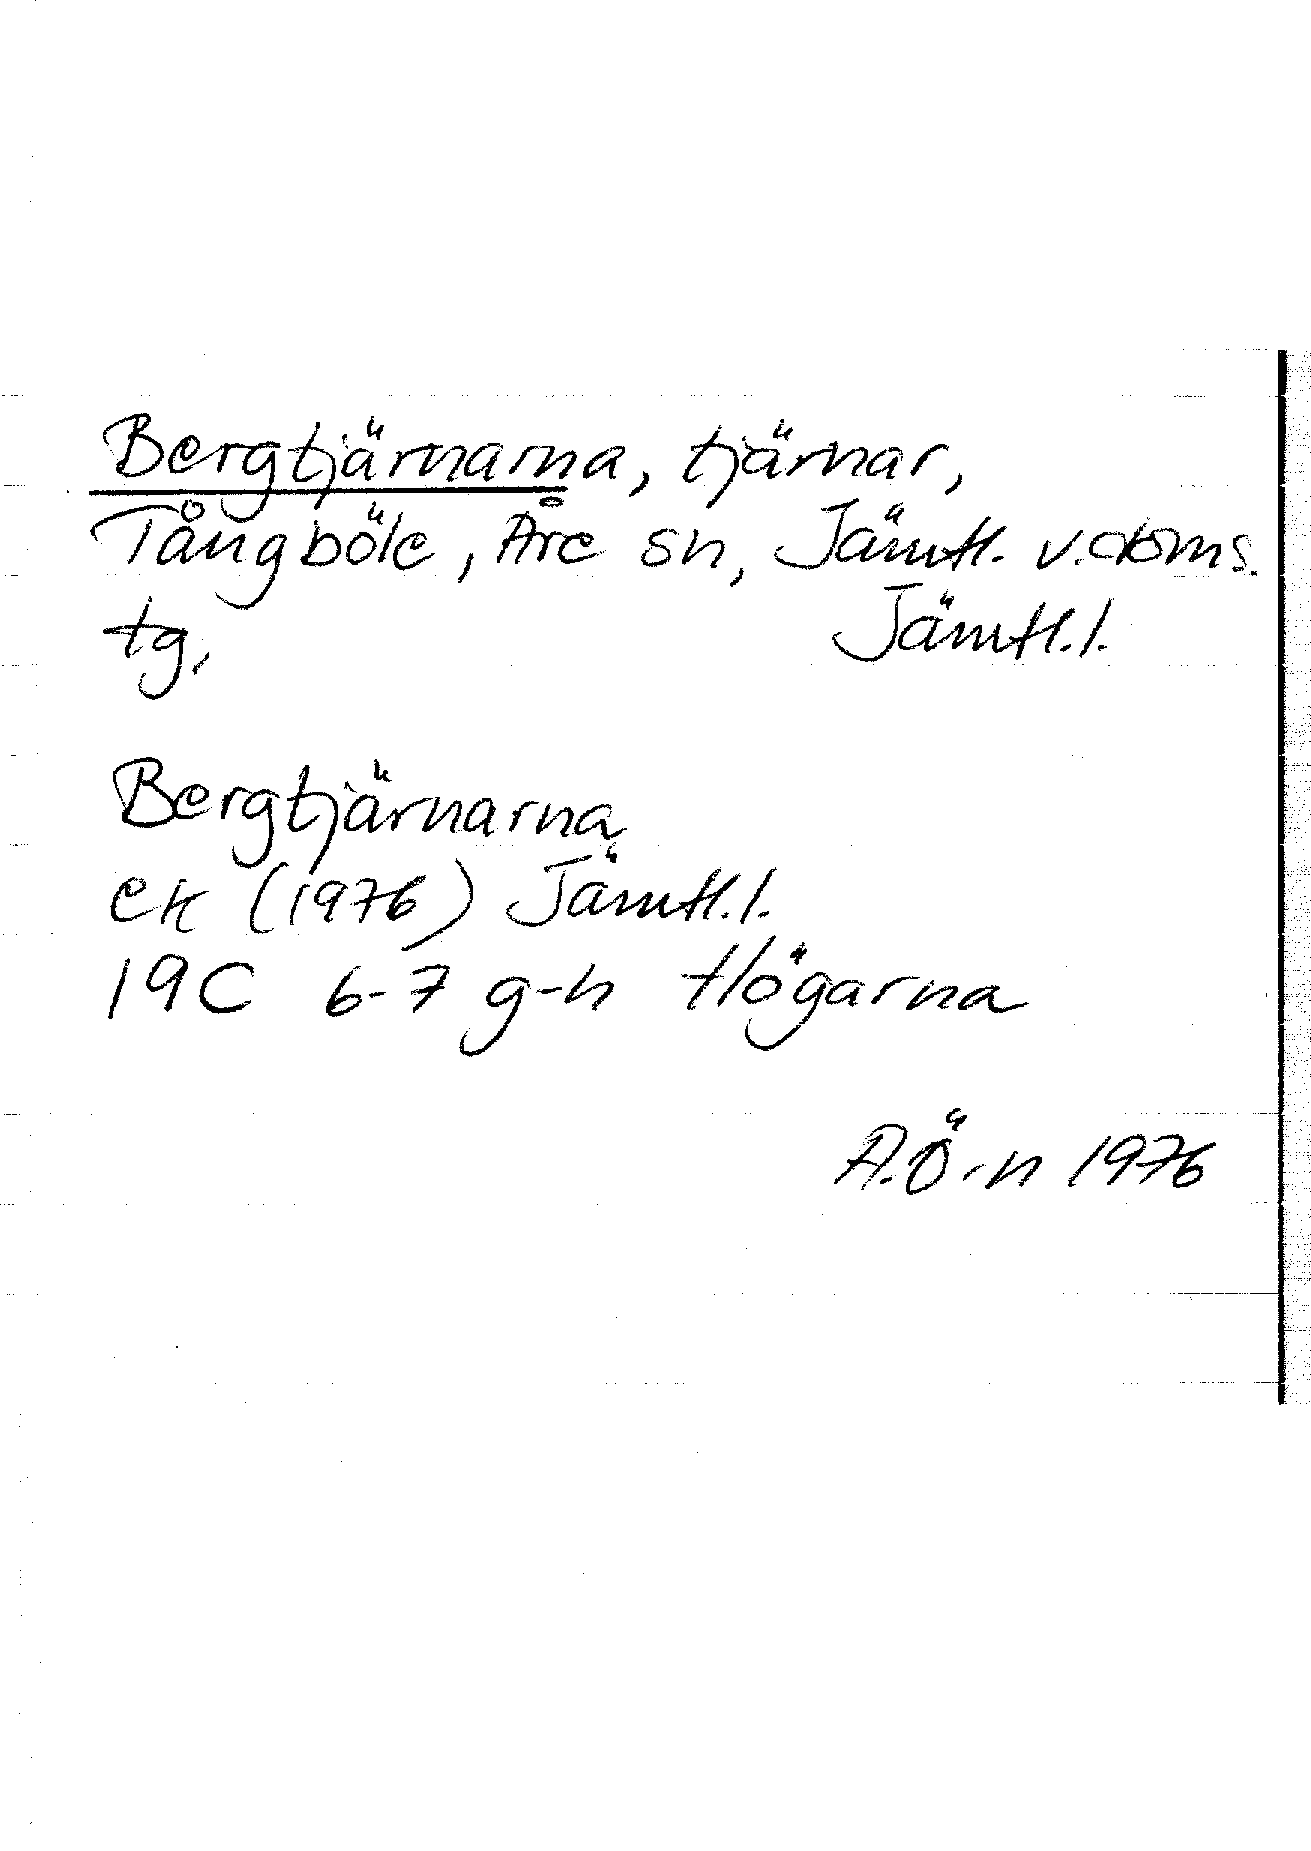 Bergtjärnarna, tjärnar,
Tångböle, Åre sn, Jämtl. v. doms.
tg, Jämtl. l.
Bergtjärnarna
ek (1976) Jämtl. l.
19C 6-7 g-h Högarna
A. Ö-n 1976